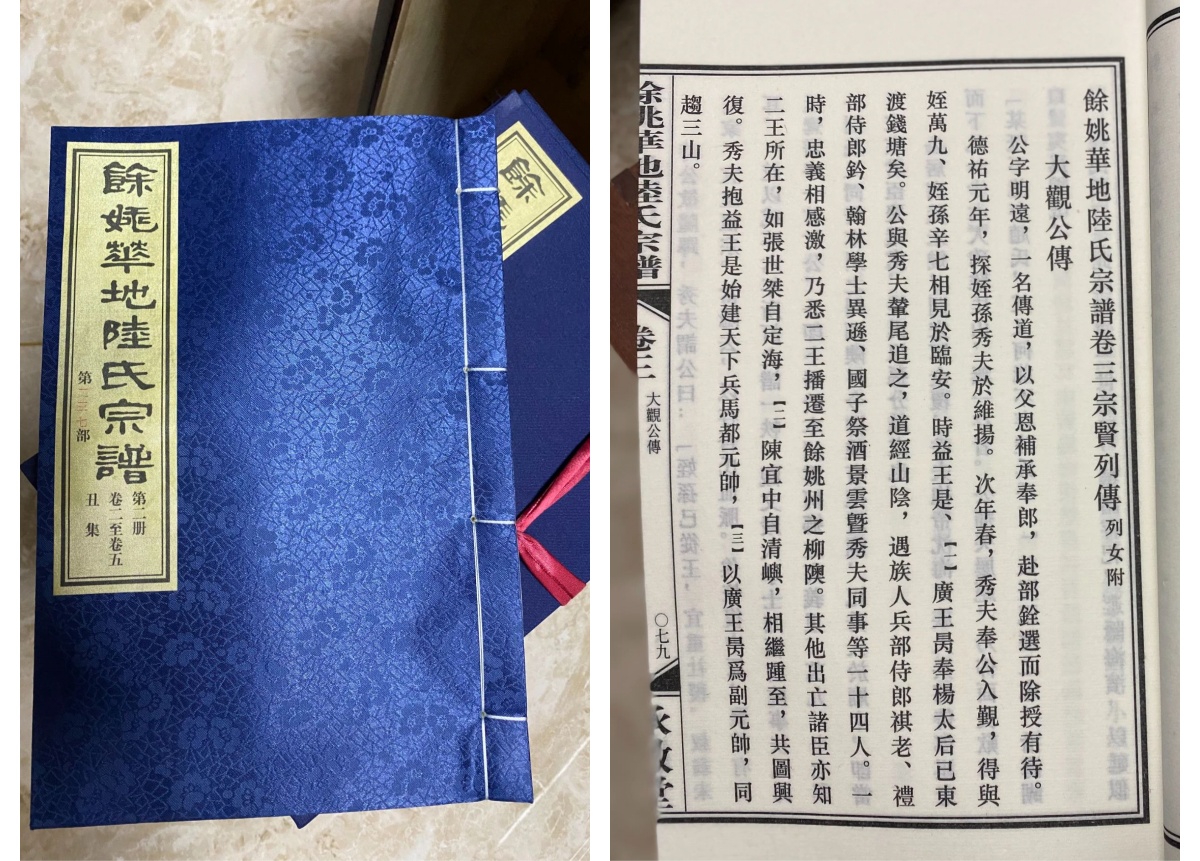 餘姚華地陸氏宗譜
第部
第二册
卷二至卷五
丑集
餘姚
餘姚華地陸氏宗譜卷三宗賢列傳列女附
大觀公傳
公字明遠，一名傳道，以父恩補承奉郎，赴部銓選而除授有待。
德祐元年，探姪孫秀夫於維揚。次年春，秀夫奉公入覲，得與
姪萬九、姪孫辛七相見於臨安。時益王是、【一】廣王昺奉楊太后已東
渡錢塘矣。公與秀夫輦尾追之，道經山陰，遇族人兵部侍郎祺老、禮
部侍郎鈐、翰林學士異遜、國子祭酒景雲暨秀夫同事等一十四人。一
時，忠義相感激，乃悉二王播遷至餘姚州之柳隩。其他出亡諸臣亦知
二王所在，如張世桀自定海，【二】陳宜中自清嶼，相繼踵至，共圖興
復。秀夫抱益王是始建天下兵馬都元帥，【三】以廣王昺爲副元帥，同
趨三山。
餘姚華地陸氏宗譜
卷三
大觀公傳
〇七九
承敬堂